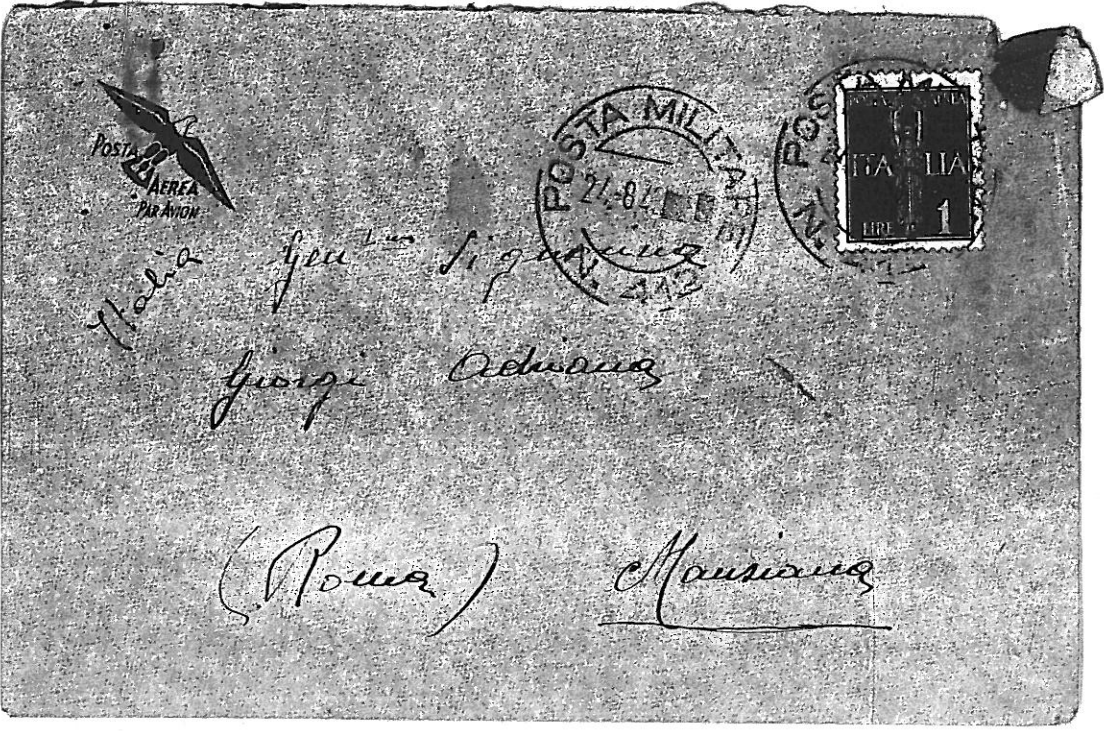 POSTA
AEREA
PAR AVION
POSTA MILITARE
N. 412
24.8.42
POS
N.
POSTA AEREA
ITALIA
LIRE 1
Italia
Gen ma Signorina
Giorgi Adriana
(Roma) Manziana